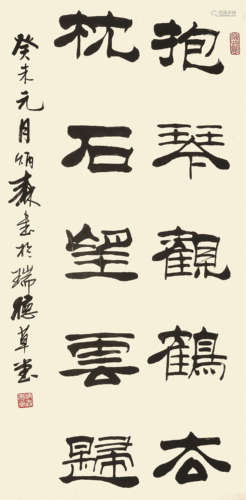 抱琴觀鶴去
枕石望雲歸
癸未元月炳森書於瑞德草堂